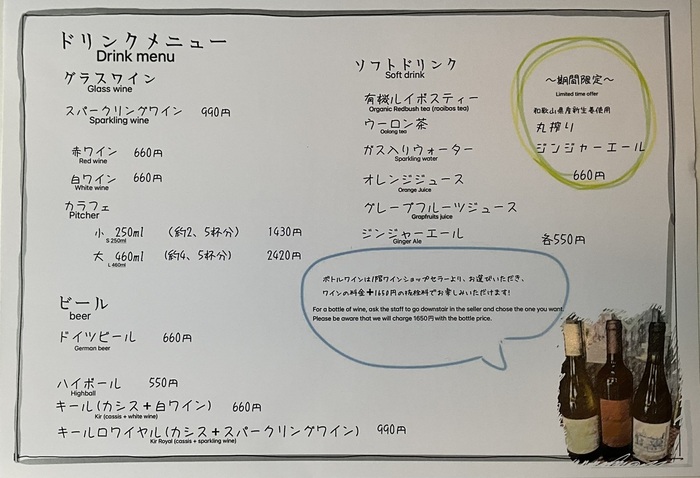 ドリンクメニュー
Drink menu
グラスワイン
Glass wine
スパークリングワイン 990円
Sparkling wine
赤ワイン 660円
Red wine
白ワイン 660円
White wine
カラフェ
Pitcher
小 250ml (約2、5杯分) 1430円
S 250ml
大 460ml (約4、5杯分) 2420円
L 460ml
ビール
beer
ドイツビール 660円
German beer
ハイボール 550円
Highball
キール(カシス+白ワイン) 660円
Kir (cassis + white wine)
キールロワイヤル(カシス+スパークリングワイン) 990円
Kir Royal (cassis + sparkling wine)
ソフトドリンク
Soft drink
有機ルイボスティー
Organic Redbush tea (rooibos tea)
ウーロン茶
Oolong tea
ガス入りウォーター
Sparkling water
オレンジジュース
Orange Juice
グレープフルーツジュース
Grapfruits juice
ジンジャーエール 各550円
Ginger Ale
〜期間限定〜
Limited time offer
和歌山県産新生姜使用
丸搾り
ジンジャーエール
660円
ボトルワインは1階ワインショップセラーより、お選びいただき、
ワインの料金+1650円の抜栓料でお楽しみいただけます!
For a bottle of wine, ask the staff to go downstair in the seller and chose the one you want.
Please be aware that we will charge 1650円 with the bottle price.